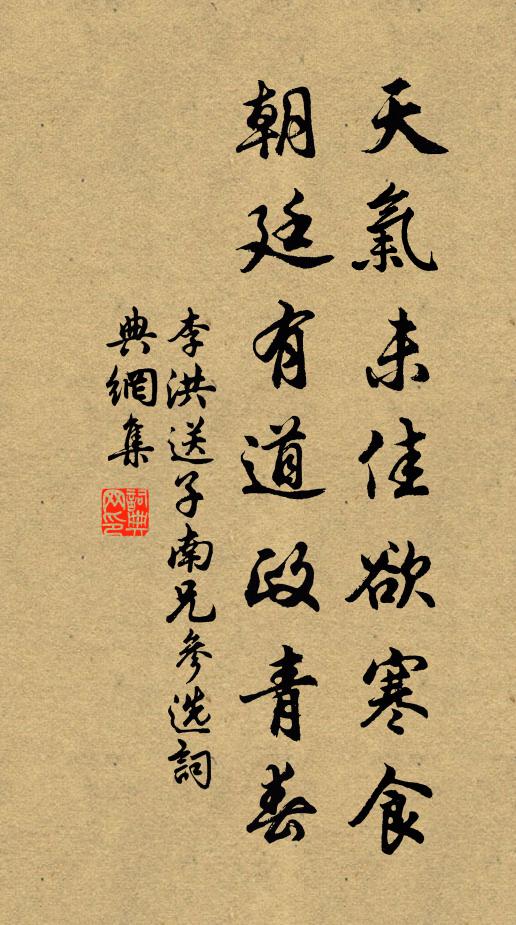 天氣未佳欲寒食
朝廷有道政青春
李洪送子南兄參选詞
典網集
詞典
网印